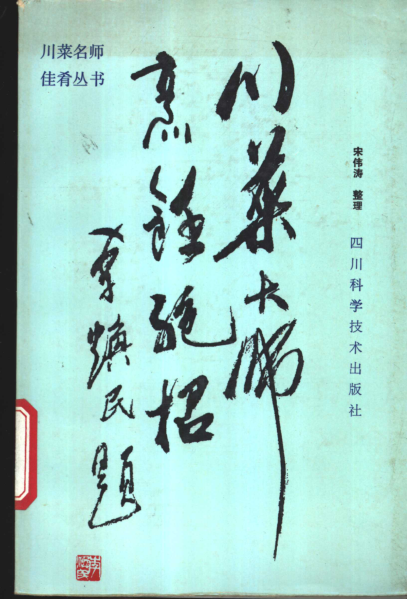 川菜名师
佳肴丛书
川菜大师
烹饪绝招
覃焕民题
宋伟涛 整理
四川科学技术出版社